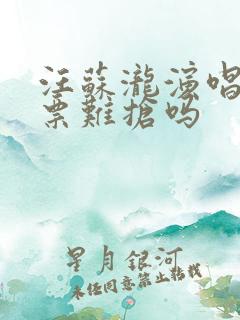 汪蘇瀧演唱
票難搶嗎
星月銀河
未经同意禁止转载